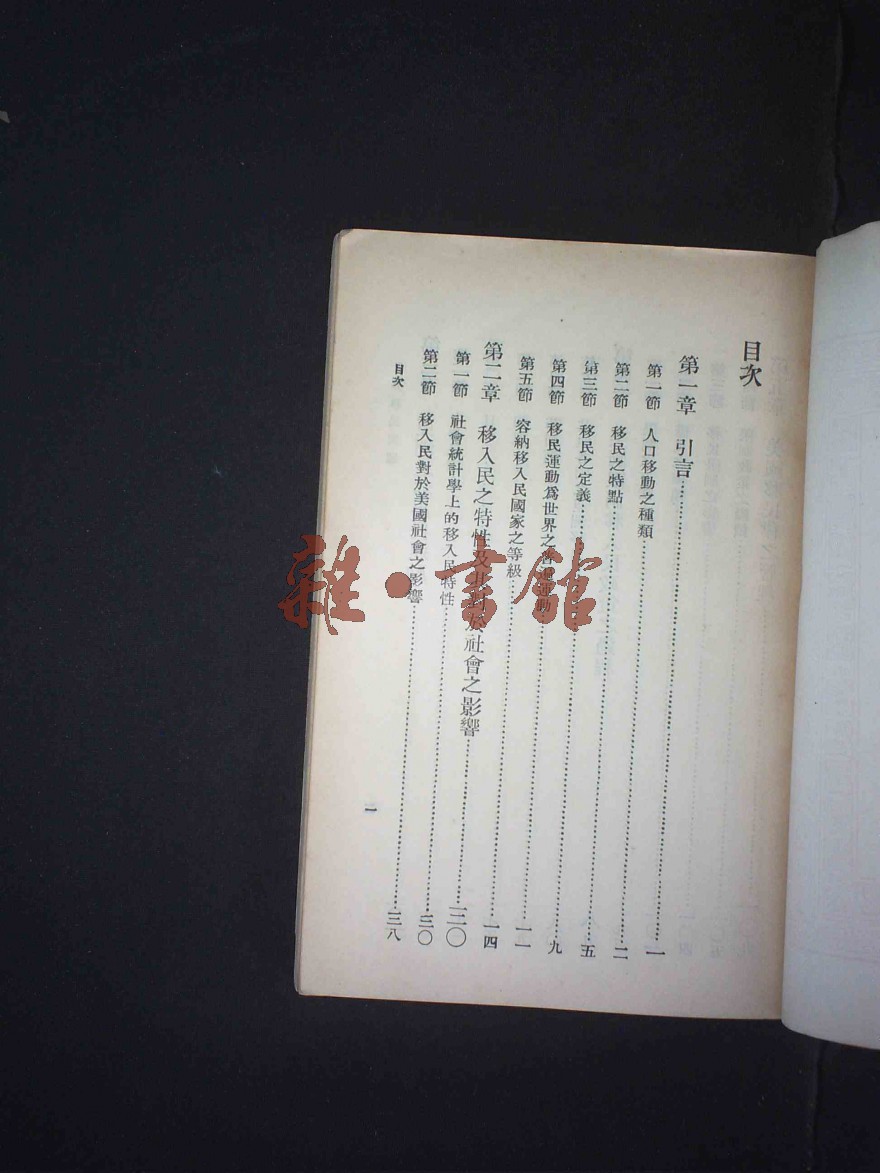 目次
第一章 引言……一
第一節 人口移動之種類……二
第二節 移民之特點……五
第三節 移民之定義……九
第四節 移民運動爲世界之運動……一一
第五節 容納移入民國家之等級……一四
第二章 移入民之特性及其對於社會之影響……二〇
第一節 社會統計學上的移入民特性……三〇
第二節 移入民對於美國社會之影響……三八
目次
一
雜·書館